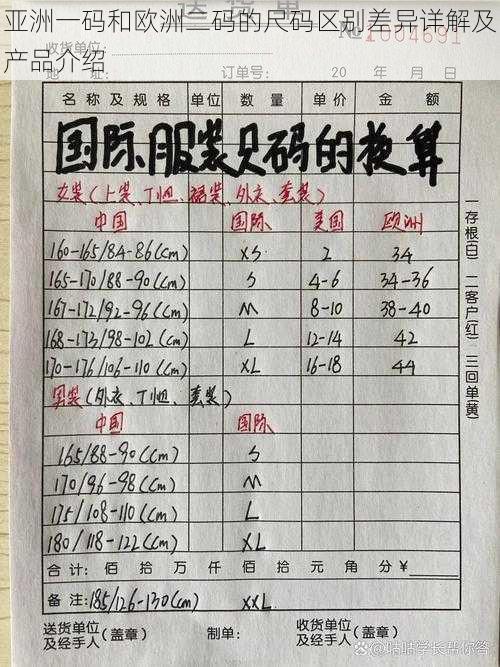 亚洲一码和欧洲二码的尺码区别差异详解及
产品介绍
送货单
收货单位: 1004691
地址: 订单号: 20 年 月 日
名称及规格 单位 数量 单价 金额
国际服装尺码的换算
女装(上装、T恤、裙装、外衣、套装)
中国 国际 美国 欧洲
160-165/84-86(cm) XS 2 34
165-170/88-90(cm) S 4-6 34-36
167-172/92-96(cm) M 8-10 38-40
168-173/98-102(cm) L 12-14 42
170-176/106-110(cm) XL 16-18 44
男装(外衣、T恤、套装)
中国 国际
165/88-90(cm) S
170/96-98(cm) M
175/108-110(cm) L
180/118-122(cm) XL
合计: 佰 拾 万 仟 佰 拾 元 角 分 ¥
备注: 185/126-130(cm) XXL
送货单位及经手人(盖章) 制单: 收货单位及经手人(盖章)
一存根(白) 二客户(红) 三回单(黄)
@咕咕学长帮你答